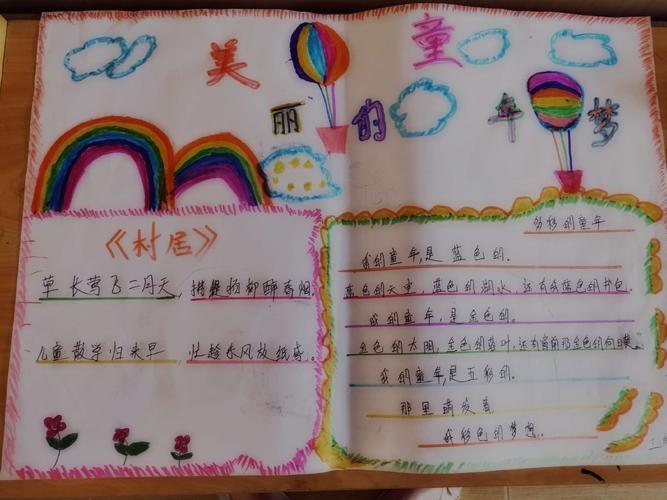 美丽的童年梦
《村居》
草长莺飞二月天,拂堤杨柳醉春烟。
儿童散学归来早,忙趁东风放纸鸢。
多彩的童年
我的童年,是蓝色的。
蓝色的天空,蓝色的湖水,还有我蓝色的书包。
我的童年,是金色的。
金色的太阳,金色的落叶,还有
我的童年,是五彩的。
那里萌发着
我彩色的梦想。